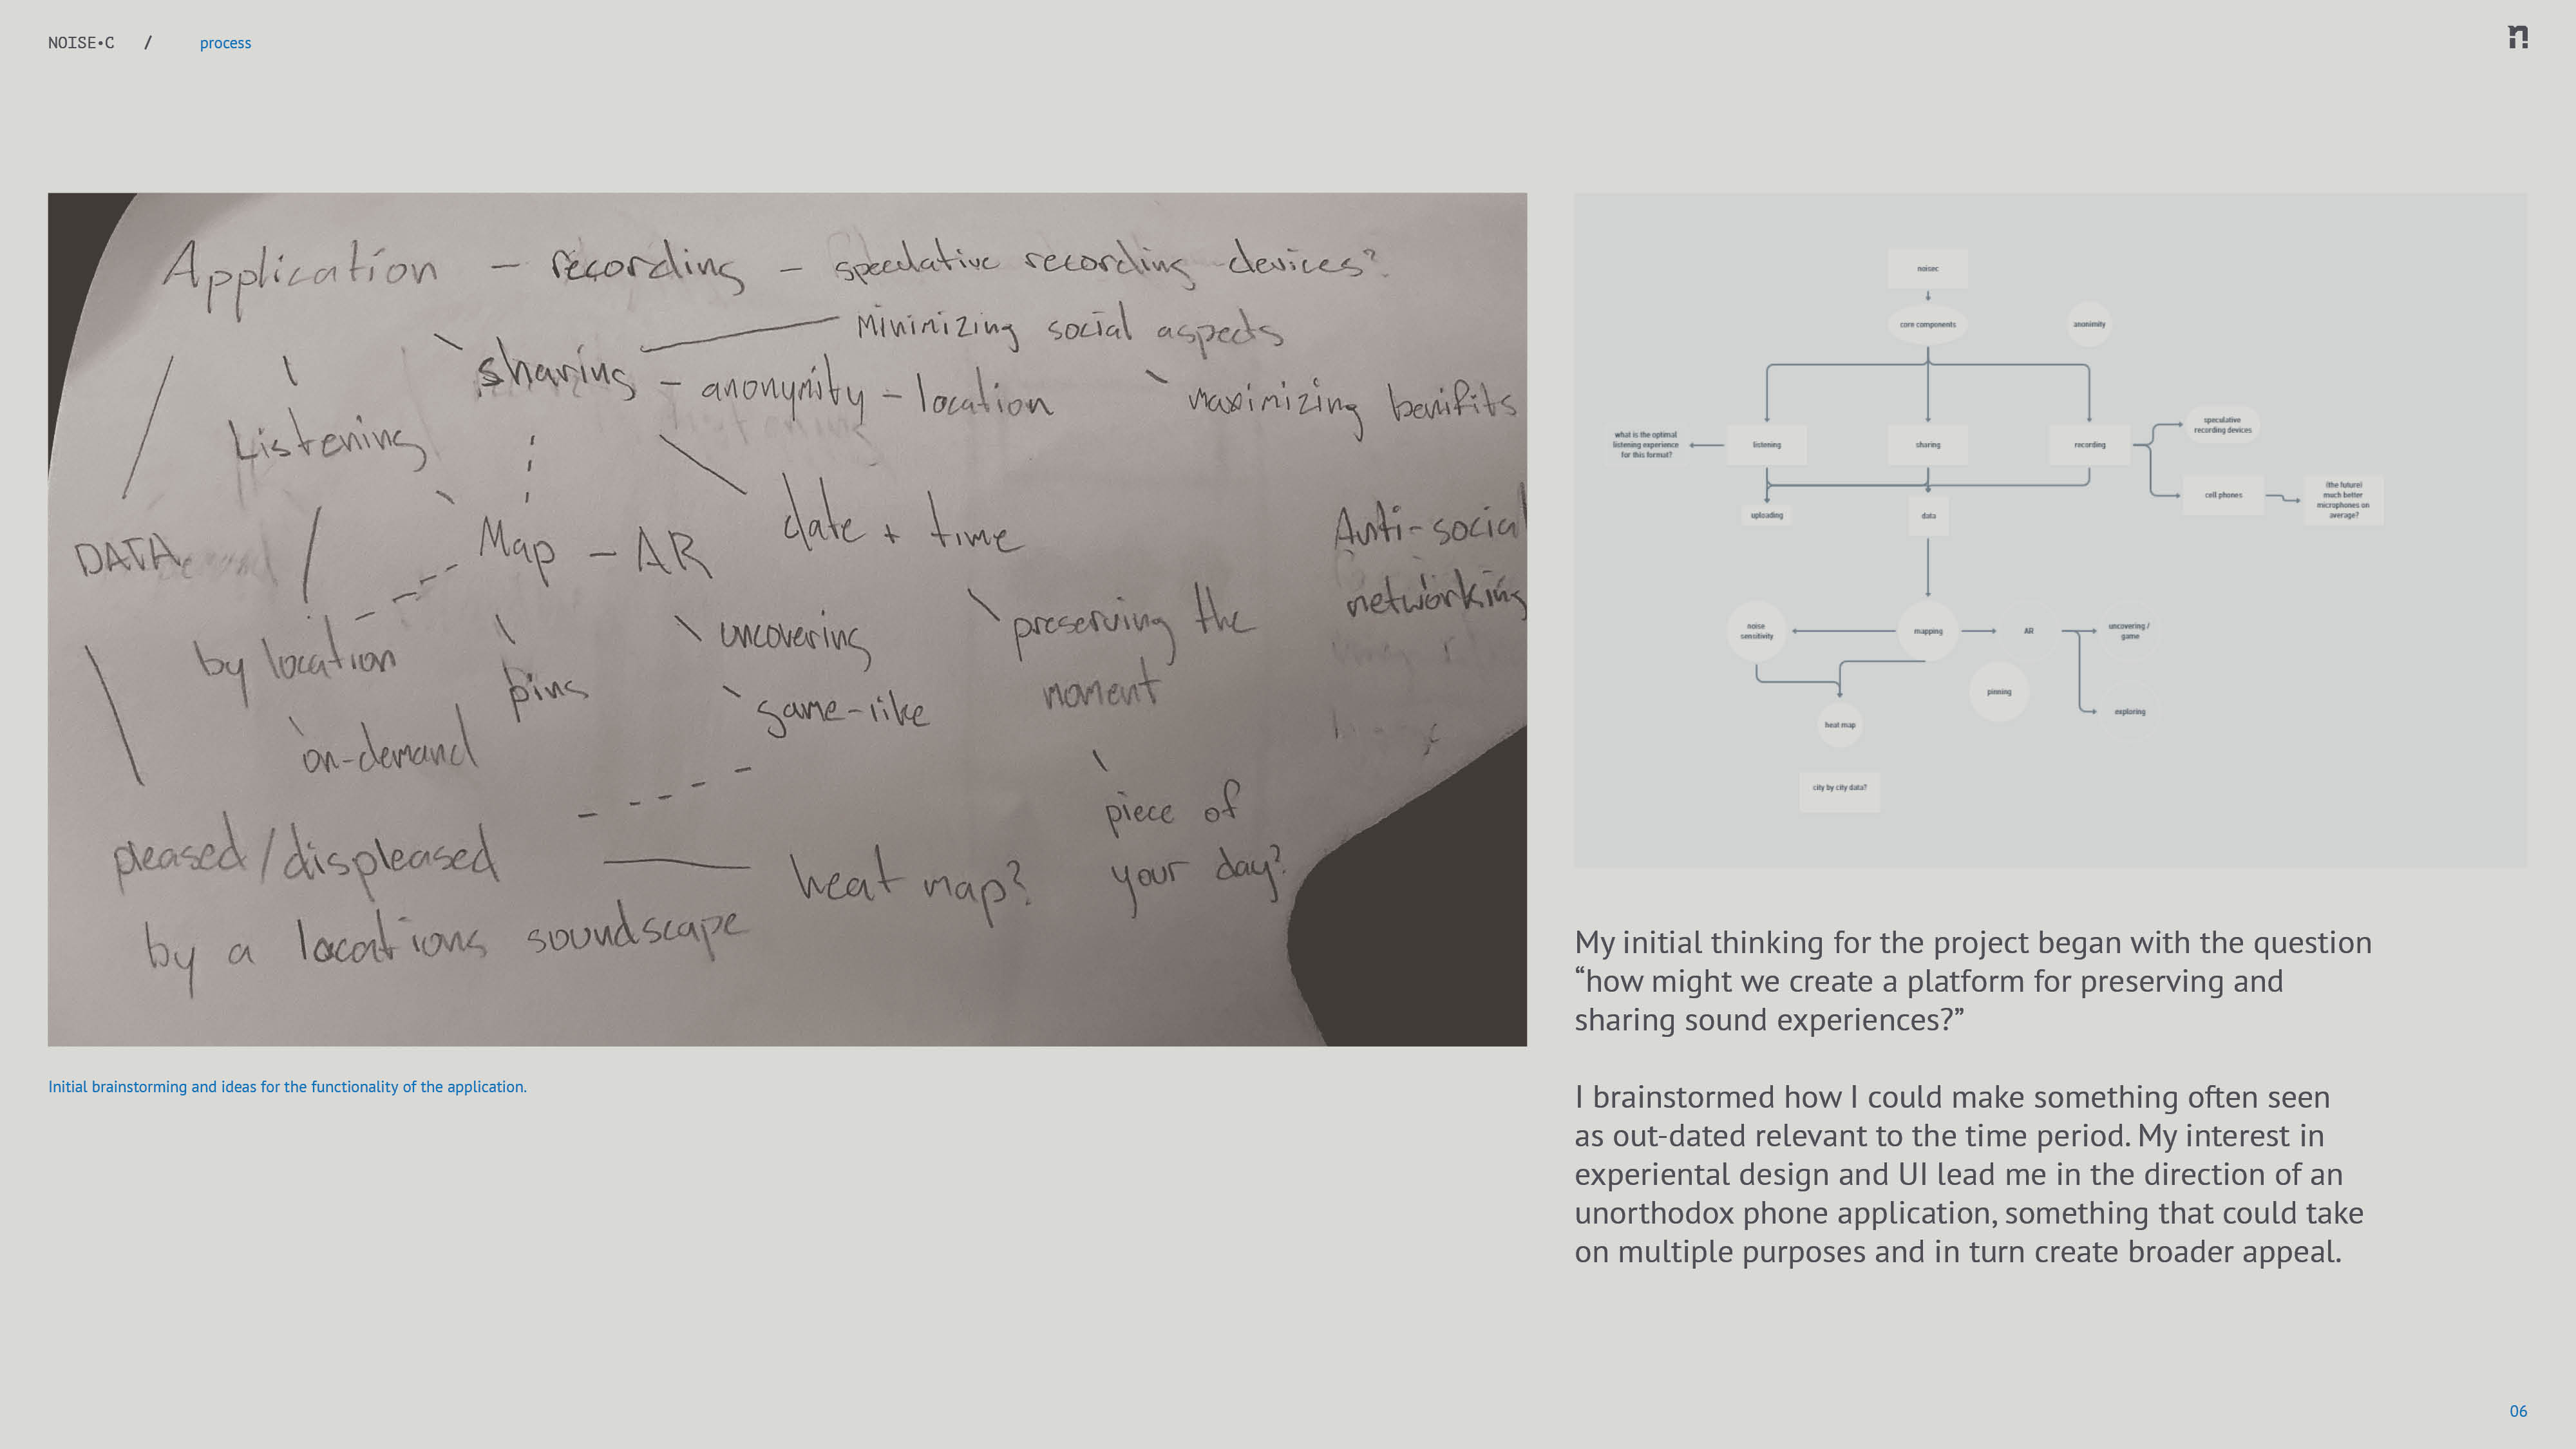 NOISE•C / process
n!
Application – recording – speculative recording devices?
sharing — Minimizing social aspects
– anonymity – location
maximizing benifits
Listening
DATA
Map – AR
date + time
Anti-social
networking
by location
pins
uncovering
preserving the
moment
on-demand
game-like
piece of
your day?
pleased/displeased
by a locations soundscape
heat map?
Initial brainstorming and ideas for the functionality of the application.
noisec
core components
anonimity
what is the optimal
listening experience
for this format?
listening
sharing
recording
speculative
recording devices
cell phones
(the future)
much better
microphones on
average?
uploading
data
noise
sensitivity
mapping
AR
uncovering /
game
pinning
exploring
heat map
city by city data?
My initial thinking for the project began with the question
“how might we create a platform for preserving and
sharing sound experiences?”
I brainstormed how I could make something often seen
as out-dated relevant to the time period. My interest in
experiental design and UI lead me in the direction of an
unorthodox phone application, something that could take
on multiple purposes and in turn create broader appeal.
06